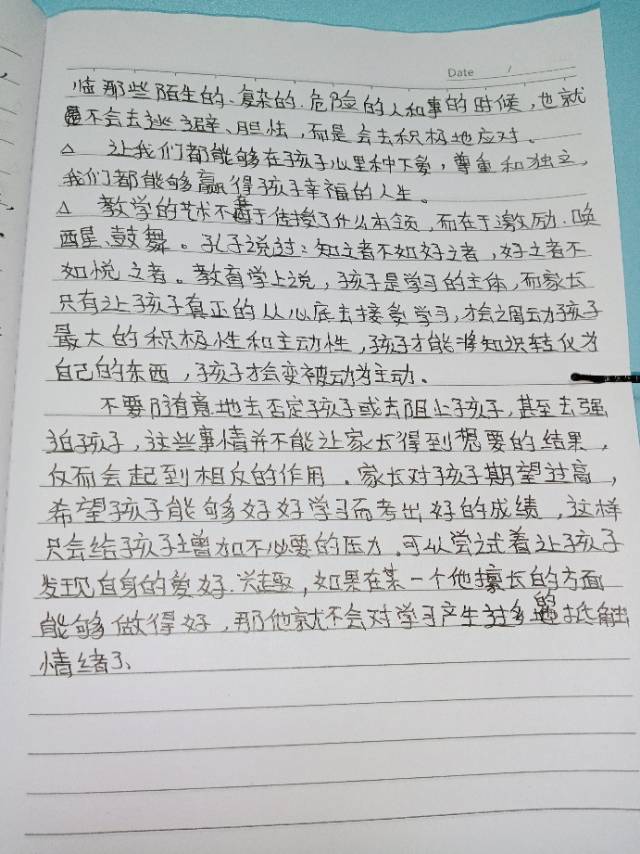 Date /
临那些陌生的、复杂的、危险的人和事的时候，也就
不会去逃避、胆怯，而是会去积极地应对。
△ 让我们都能够在孩子心里种下爱，尊重和独立，
我们都能够赢得孩子幸福的人生。
△ 教学的艺术不在于传授了什么本领，而在于激励、唤
醒、鼓舞。孔子说过：知之者不如好之者，好之者不
如悦之者。教育学上说，孩子是学习的主体，而家长
只有让孩子真正的从心底去接受学习，才会调动孩子
最大的积极性和主动性，孩子才能将知识转化为
自己的东西，孩子才会变被动为主动。
不要随意地去否定孩子或去阻止孩子，甚至去强
迫孩子，这些事情并不能让家长得到想要的结果，
反而会起到相反的作用。家长对孩子期望过高，
希望孩子能够好好学习而考出好的成绩，这样
只会给孩子增加不必要的压力。可以尝试着让孩子
发现自身的爱好、兴趣，如果在某一个他擅长的方面
能够做得好，那他就不会对学习产生过多的抵触
情绪了、